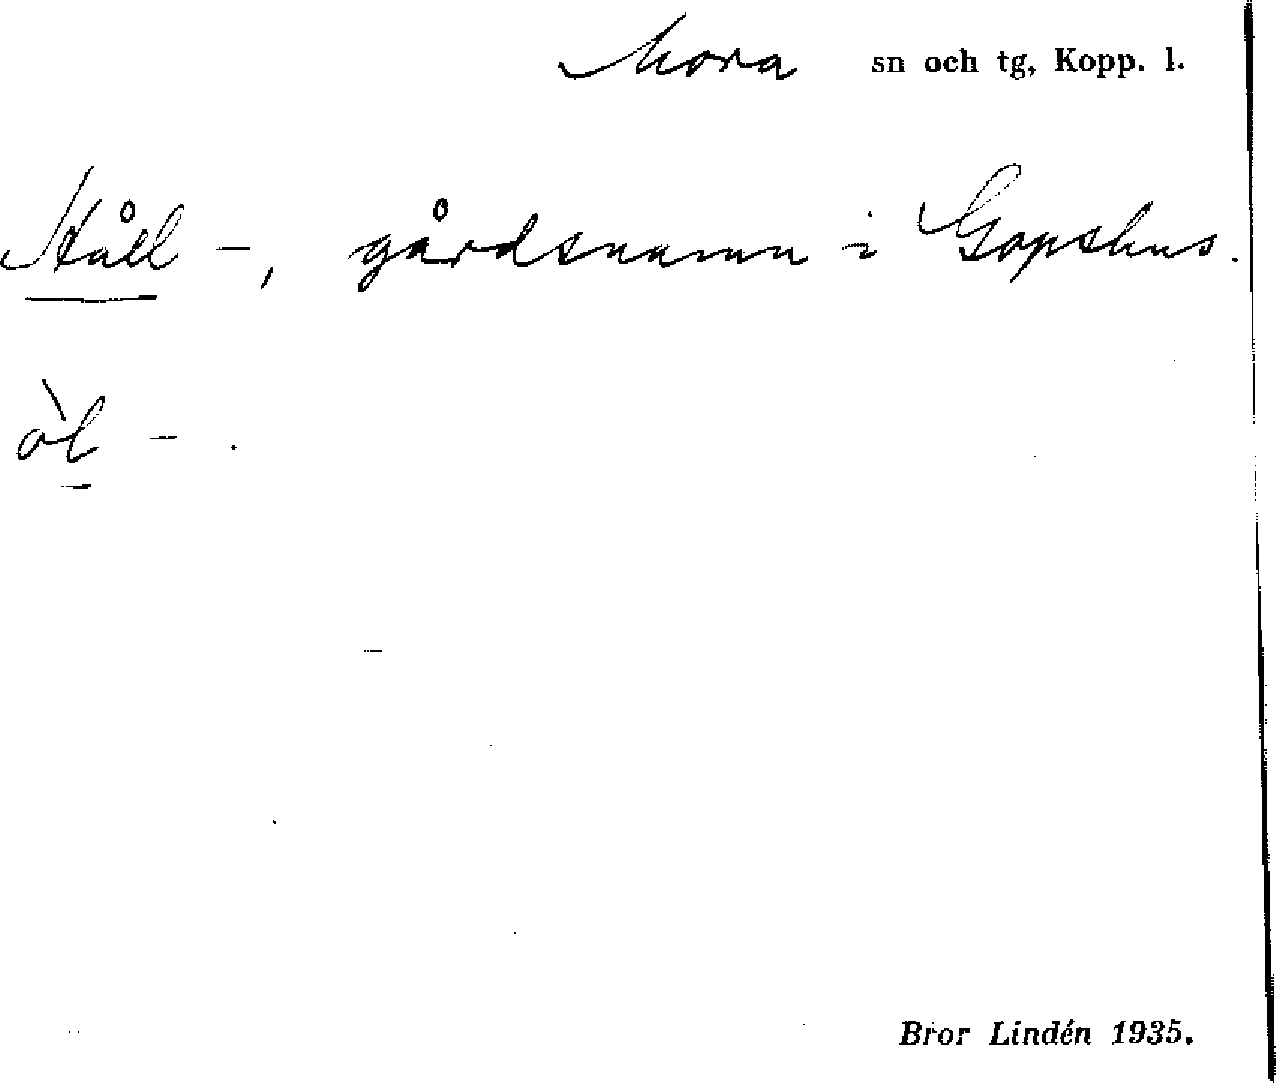 Mora sn och tg, Kopp. l.
Håll -, gårdsnamn i Gopshus.
òl - .
Bror Lindén 1935.